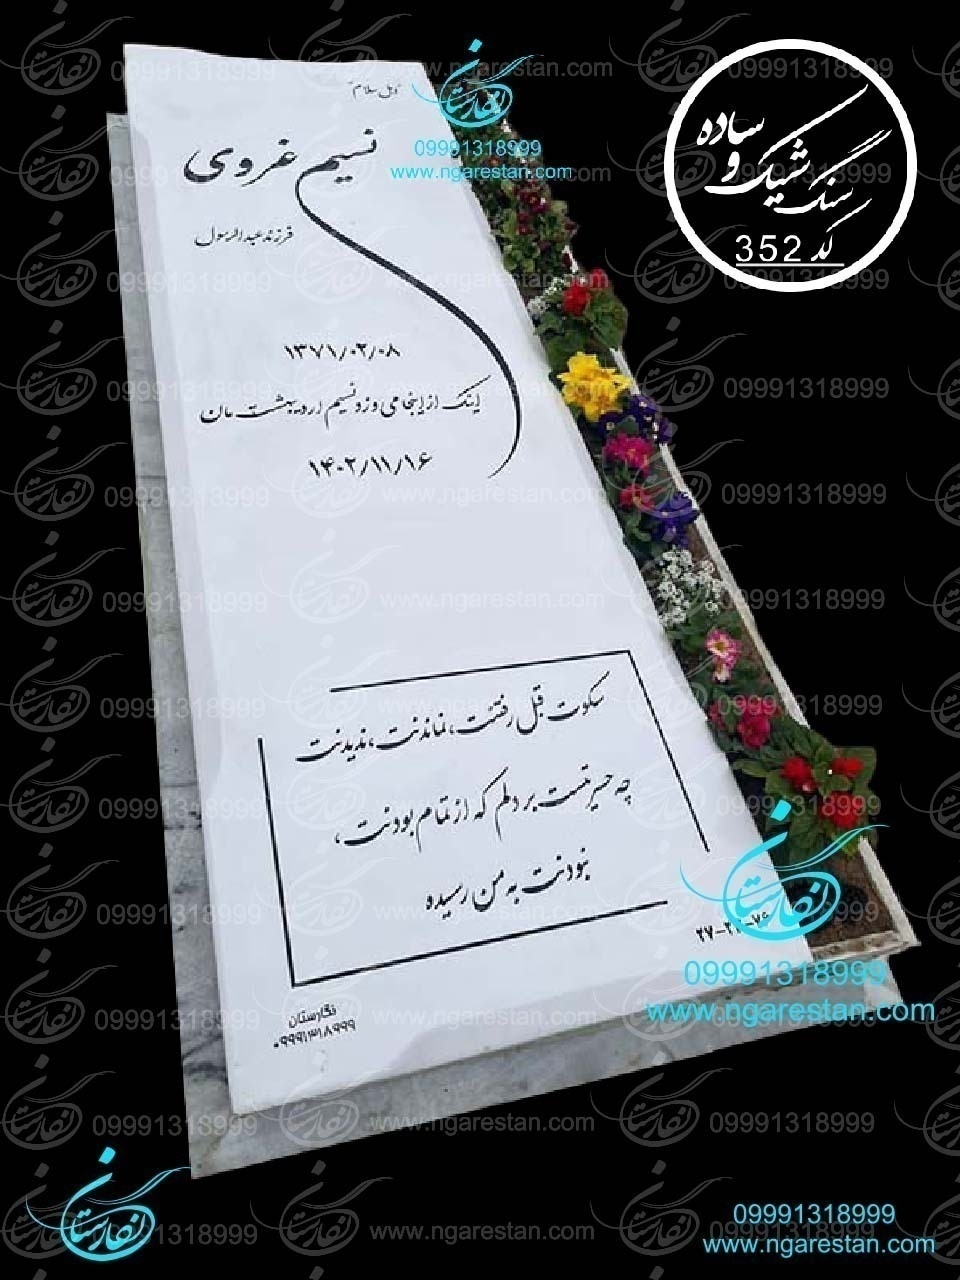 نگارستان
09991318999
www.ngarestan.com
سنگ شیک و ساده
کد 352
نسیم غروی
فرزند عبدالرسول
۱۳۷۱/۰۲/۰۸
اینک از اینجا می وزد نسیم اردیبهشت مان
۱۴۰۲/۱۱/۱۶
سکوت قبل رفتنت، نماندنت، ندیدنت
چه حسرتیست بر دلم که از تمام بودنت،
نبودنت به من رسیده
نگارستان
۰۹۹۹۱۳۱۸۹۹۹
نگارستان
09991318999
www.ngarestan.com
نگارستان
09991318999
www.ngarestan.com